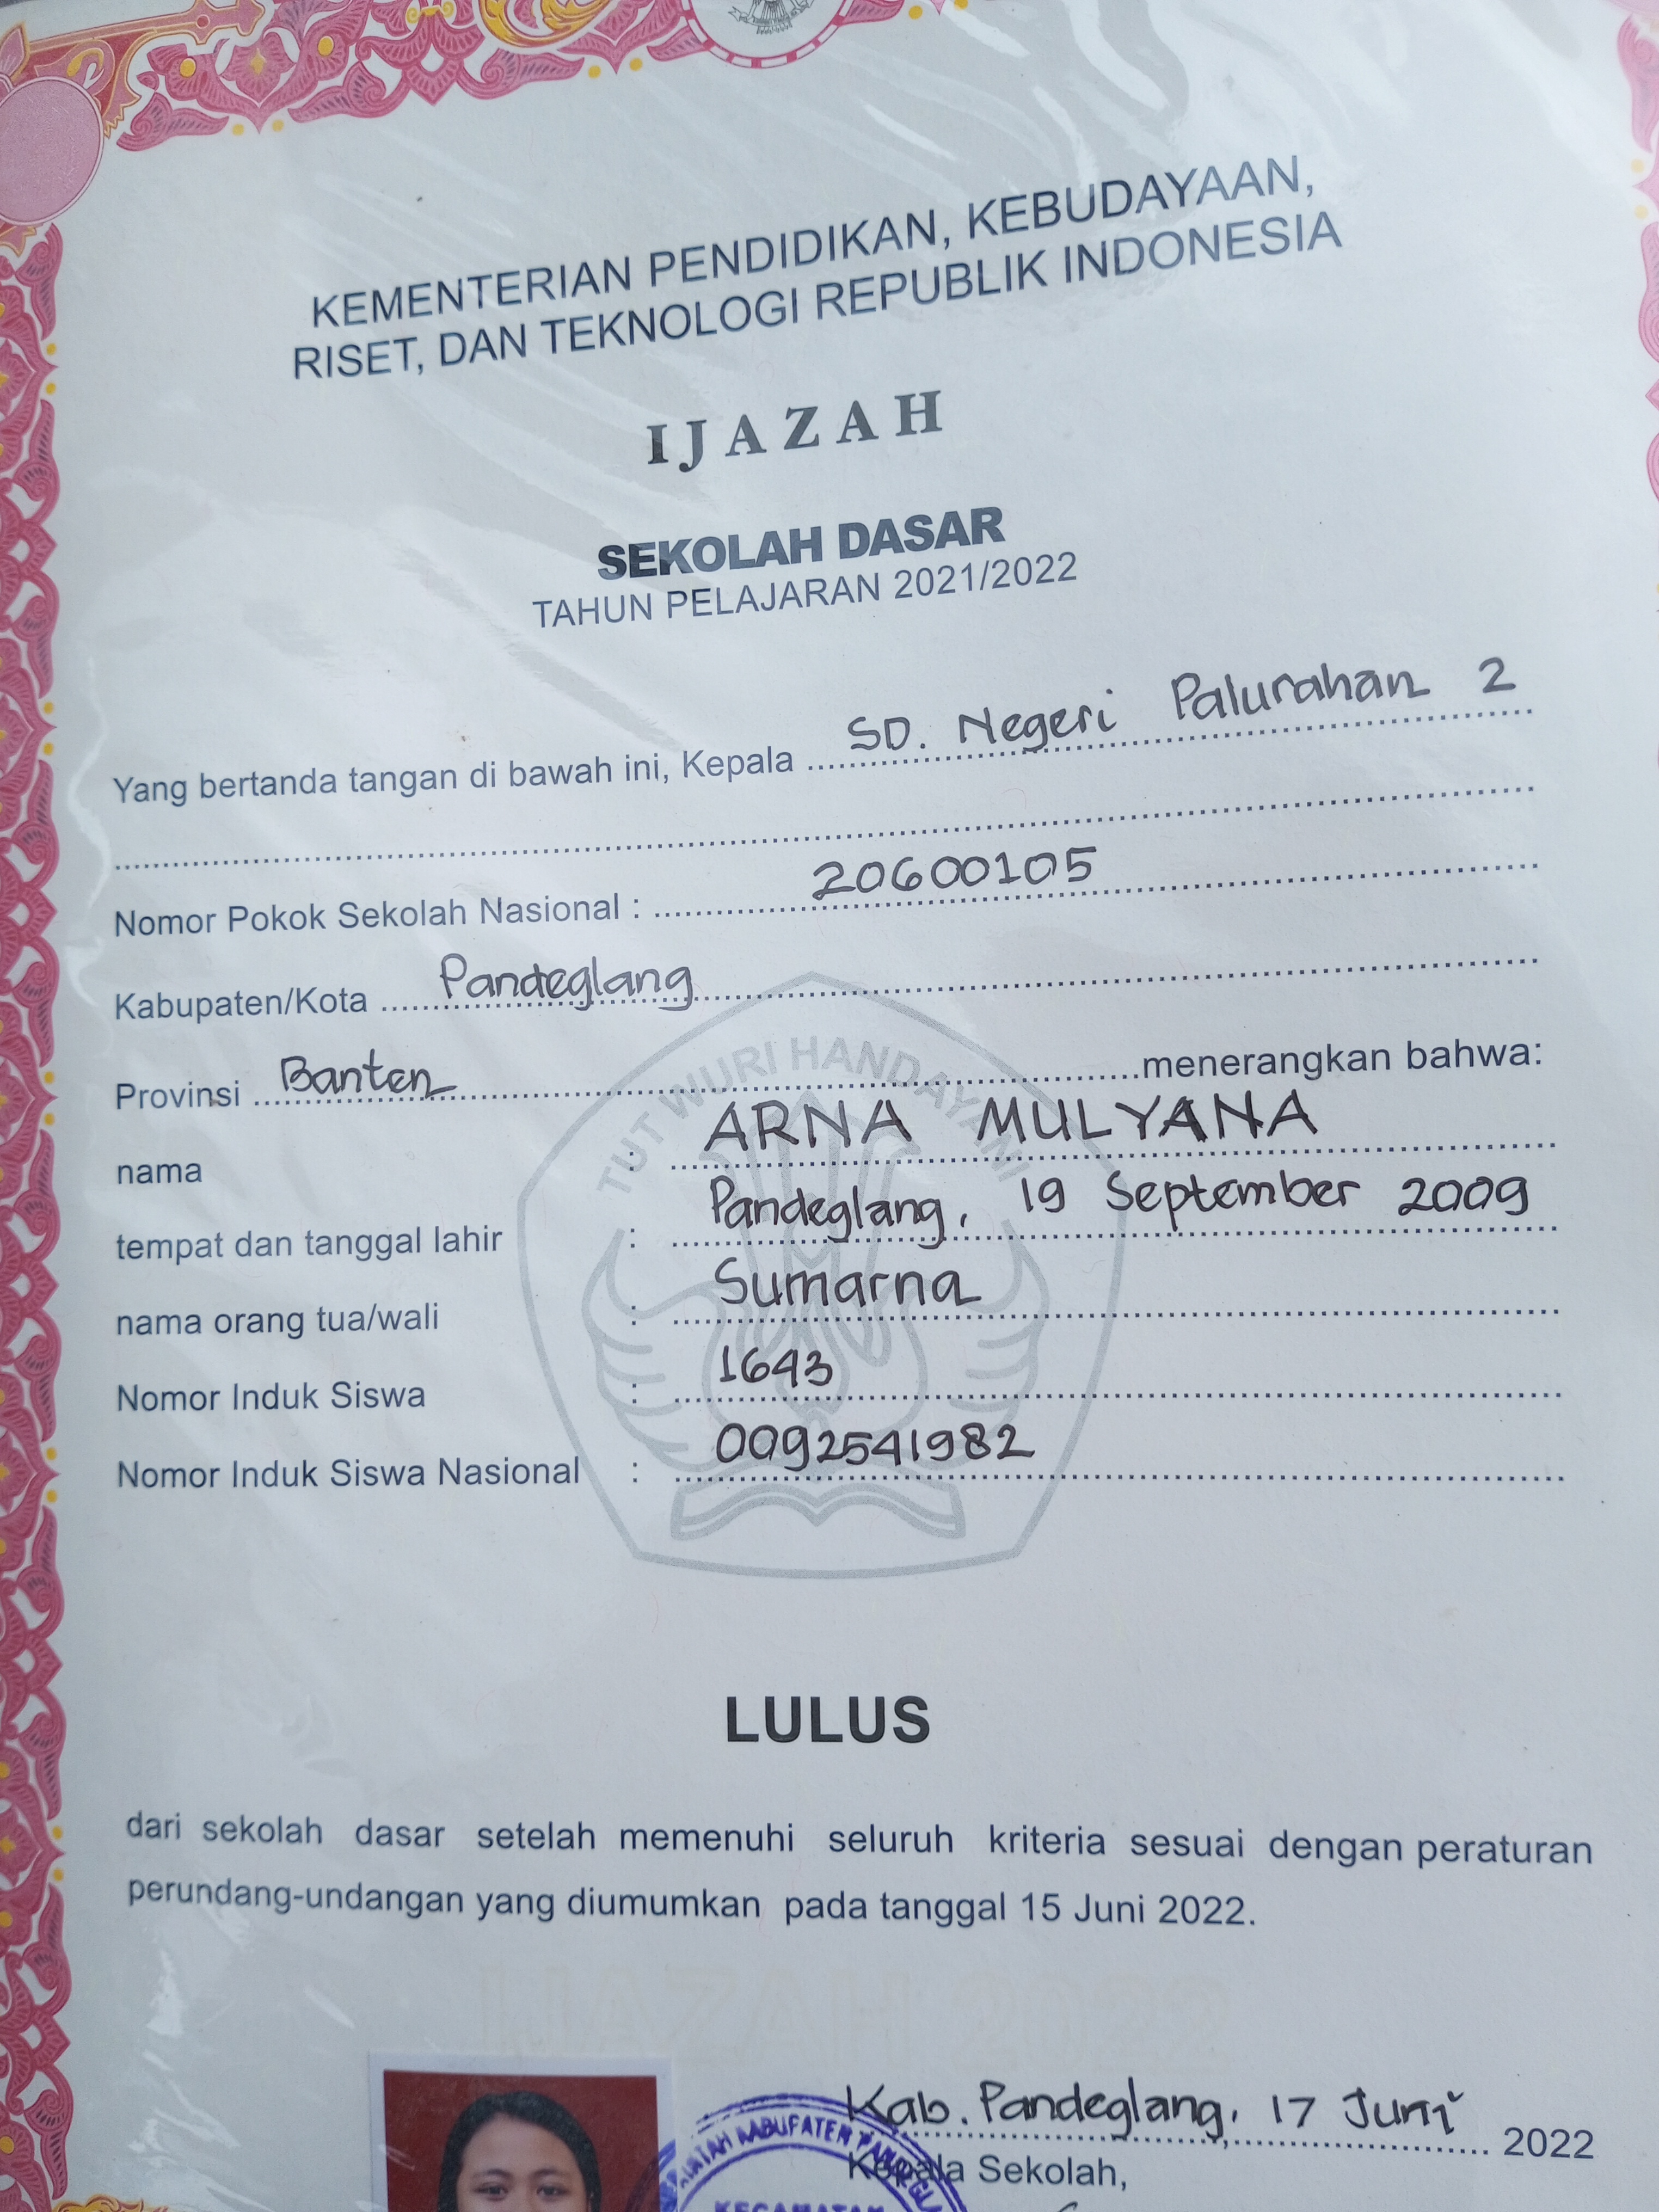 KEMENTERIAN PENDIDIKAN, KEBUDAYAAN,
RISET, DAN TEKNOLOGI REPUBLIK INDONESIA
IJAZAH
SEKOLAH DASAR
TAHUN PELAJARAN 2021/2022
Yang bertanda tangan di bawah ini, Kepala SD. Negeri Palurahan 2
Nomor Pokok Sekolah Nasional : 20600105
Kabupaten/Kota Pandeglang
Provinsi Banten menerangkan bahwa:
TUT WURI HANDAYANI
nama : ARNA MULYANA
tempat dan tanggal lahir : Pandeglang, 19 September 2009
nama orang tua/wali : Sumarna
Nomor Induk Siswa : 1643
Nomor Induk Siswa Nasional : 0092541982
LULUS
dari sekolah dasar setelah memenuhi seluruh kriteria sesuai dengan peraturan
perundang-undangan yang diumumkan pada tanggal 15 Juni 2022.
Kab. Pandeglang, 17 Juni 2022
Kepala Sekolah,
KABUPATEN
KECAMATAN